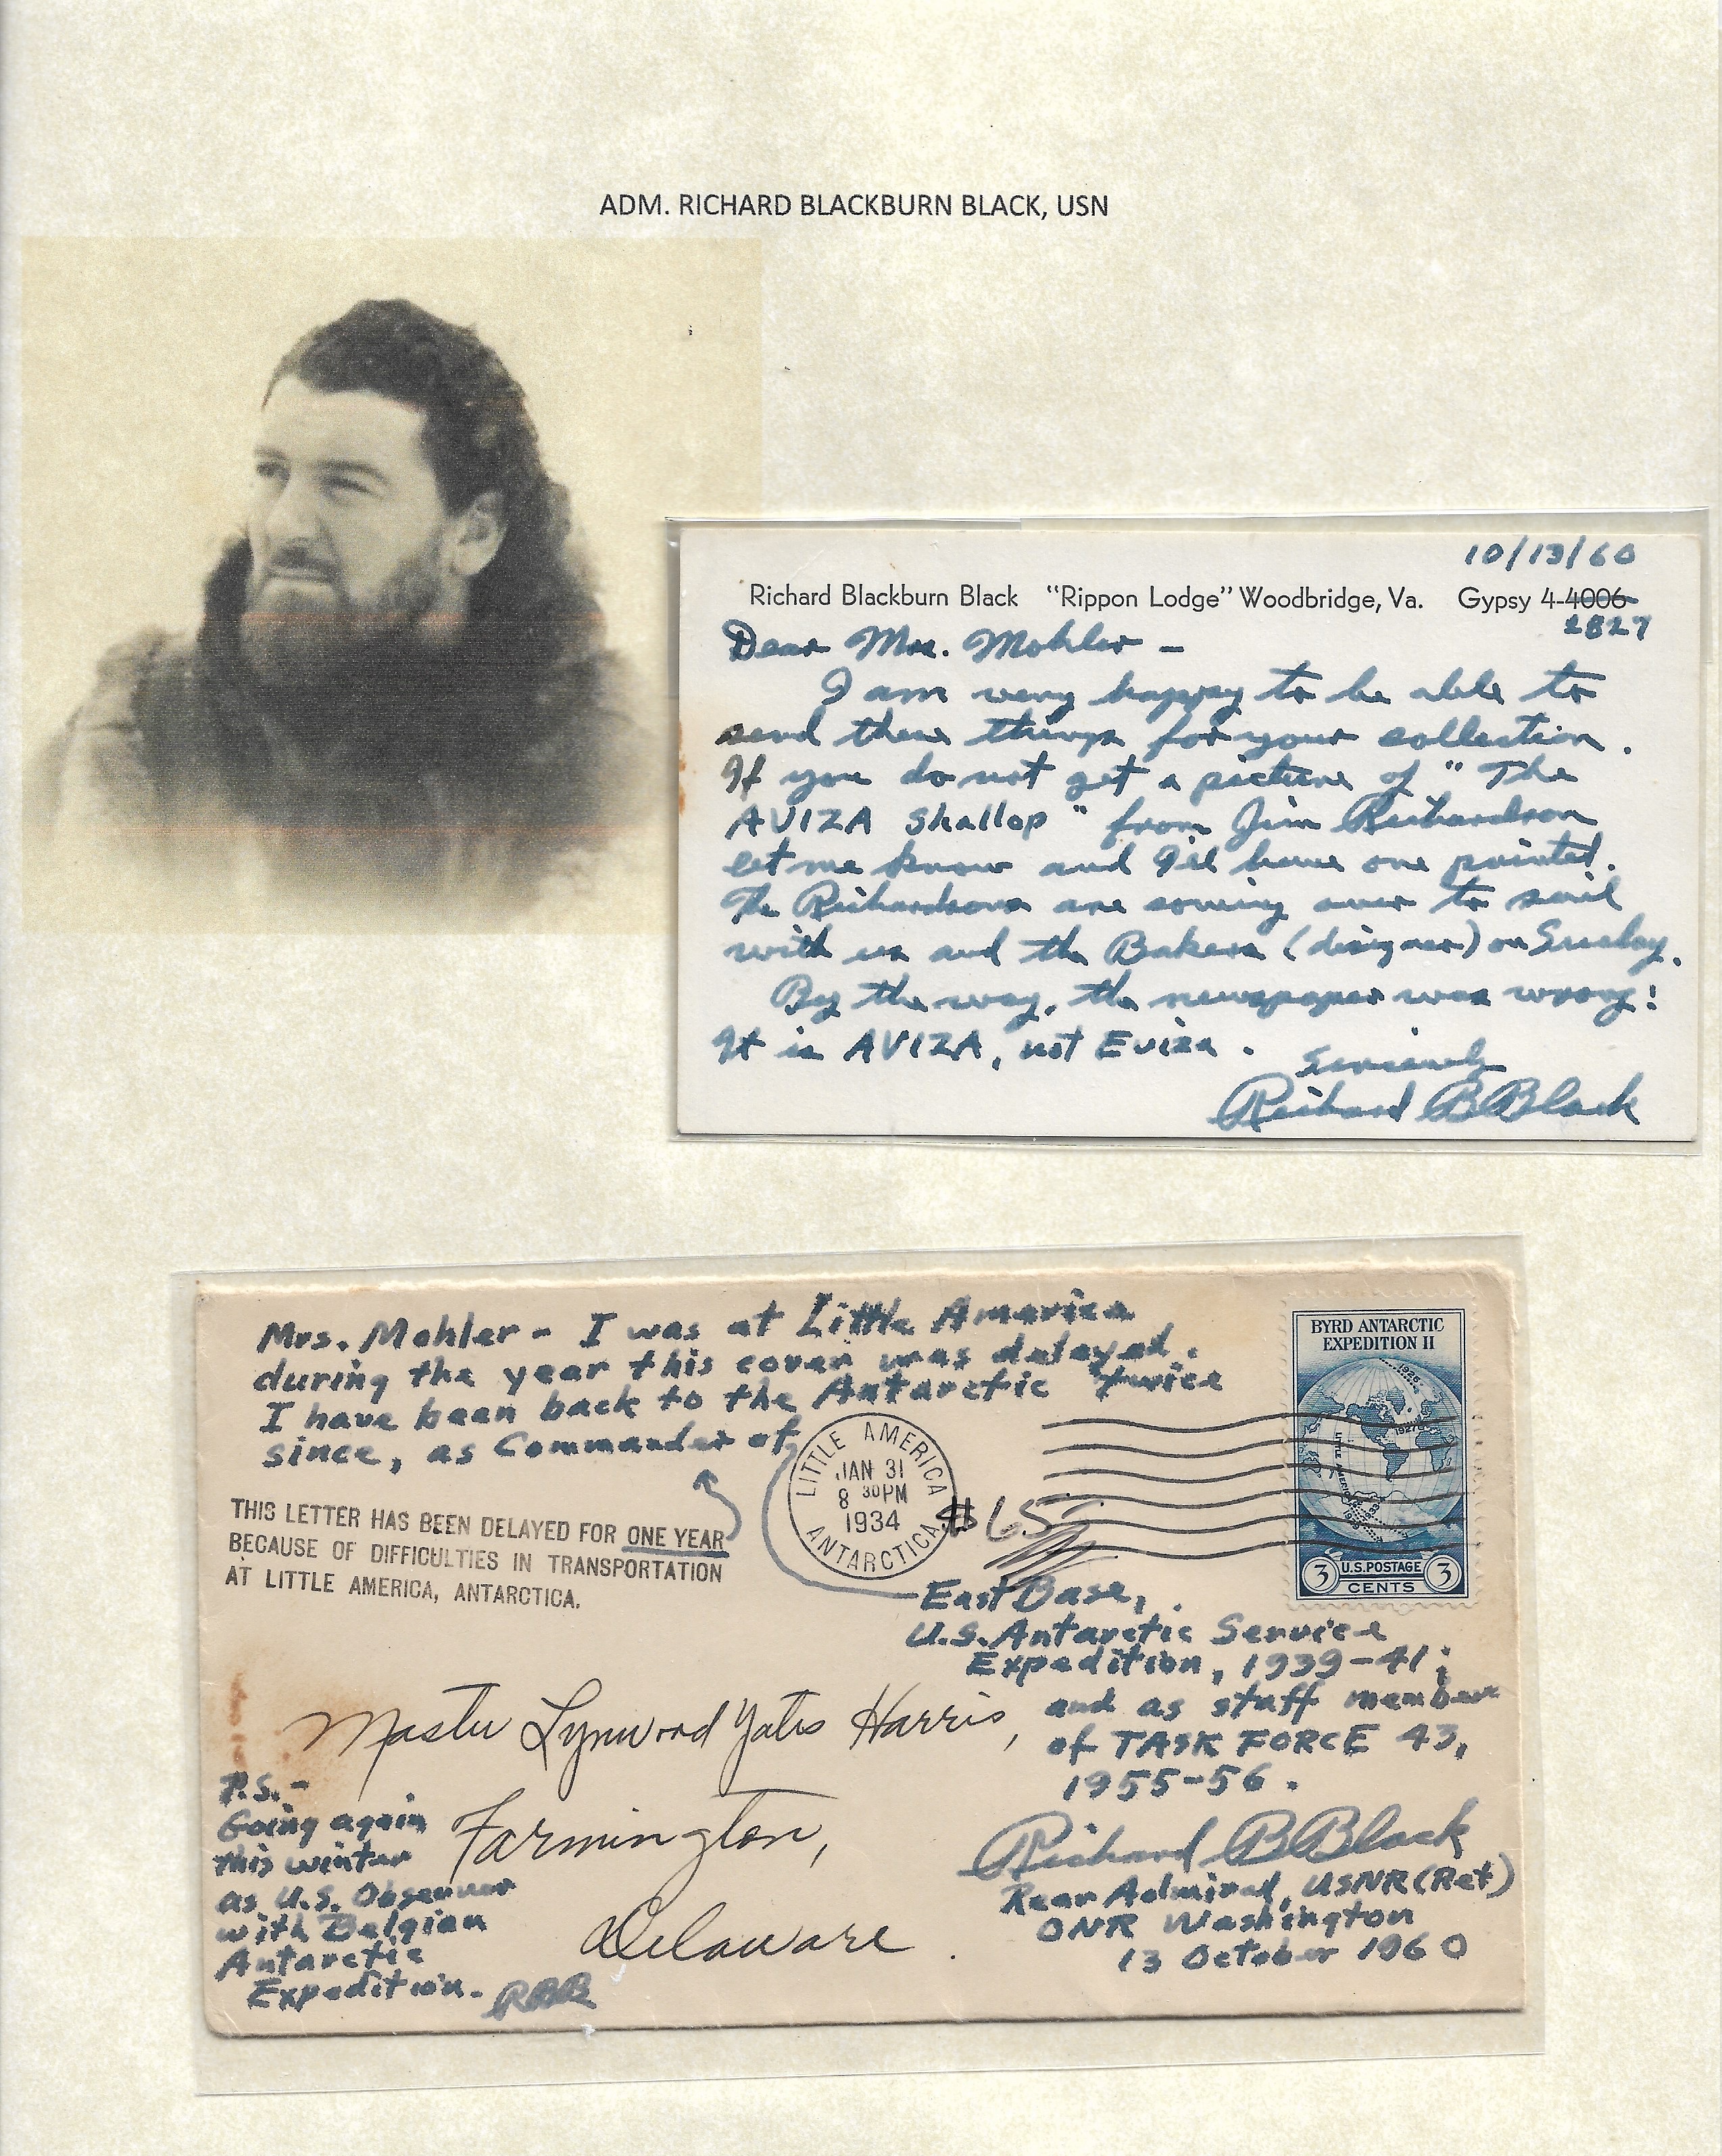 ADM. RICHARD BLACKBURN BLACK, USN
10/13/60
Richard Blackburn Black "Rippon Lodge" Woodbridge, Va. Gypsy 4-4006
2827
Dear Mrs. Mohler -
I am very happy to be able to
send these things for your collection.
If you do not get a picture of "The
AVIZA Shallop" from Jim Richardson
let me know and I'll have one printed.
The Richardsons are coming over to sail
with us and the Bakers (designer) on Sunday.
By the way, the newspaper was wrong!
It is AVIZA, not Eviza.
Sincerely
Richard B Black
Mrs. Mohler - I was at Little America
during the year this cover was delayed.
I have been back to the Antarctic twice
since, as Commander of
BYRD ANTARCTIC
EXPEDITION II
1926
1927
LITTLE AMERICA
3 U.S. POSTAGE 3
CENTS
LITTLE AMERICA
JAN 31
8 30PM
1934
ANTARCTICA
$65
THIS LETTER HAS BEEN DELAYED FOR ONE YEAR
BECAUSE OF DIFFICULTIES IN TRANSPORTATION
AT LITTLE AMERICA, ANTARCTICA.
East Base,
U.S. Antarctic Service
Expedition, 1939-41;
and as staff member
of TASK FORCE 43,
1955-56.
Richard B Black
Rear Admiral, USNR (Ret)
ONR Washington
13 October 1960
Master Lynwood Yates Harris,
Farmington,
Delaware.
P.S. -
Going again
this winter
as U.S. Observer
with Belgian
Antarctic
Expedition. RBB